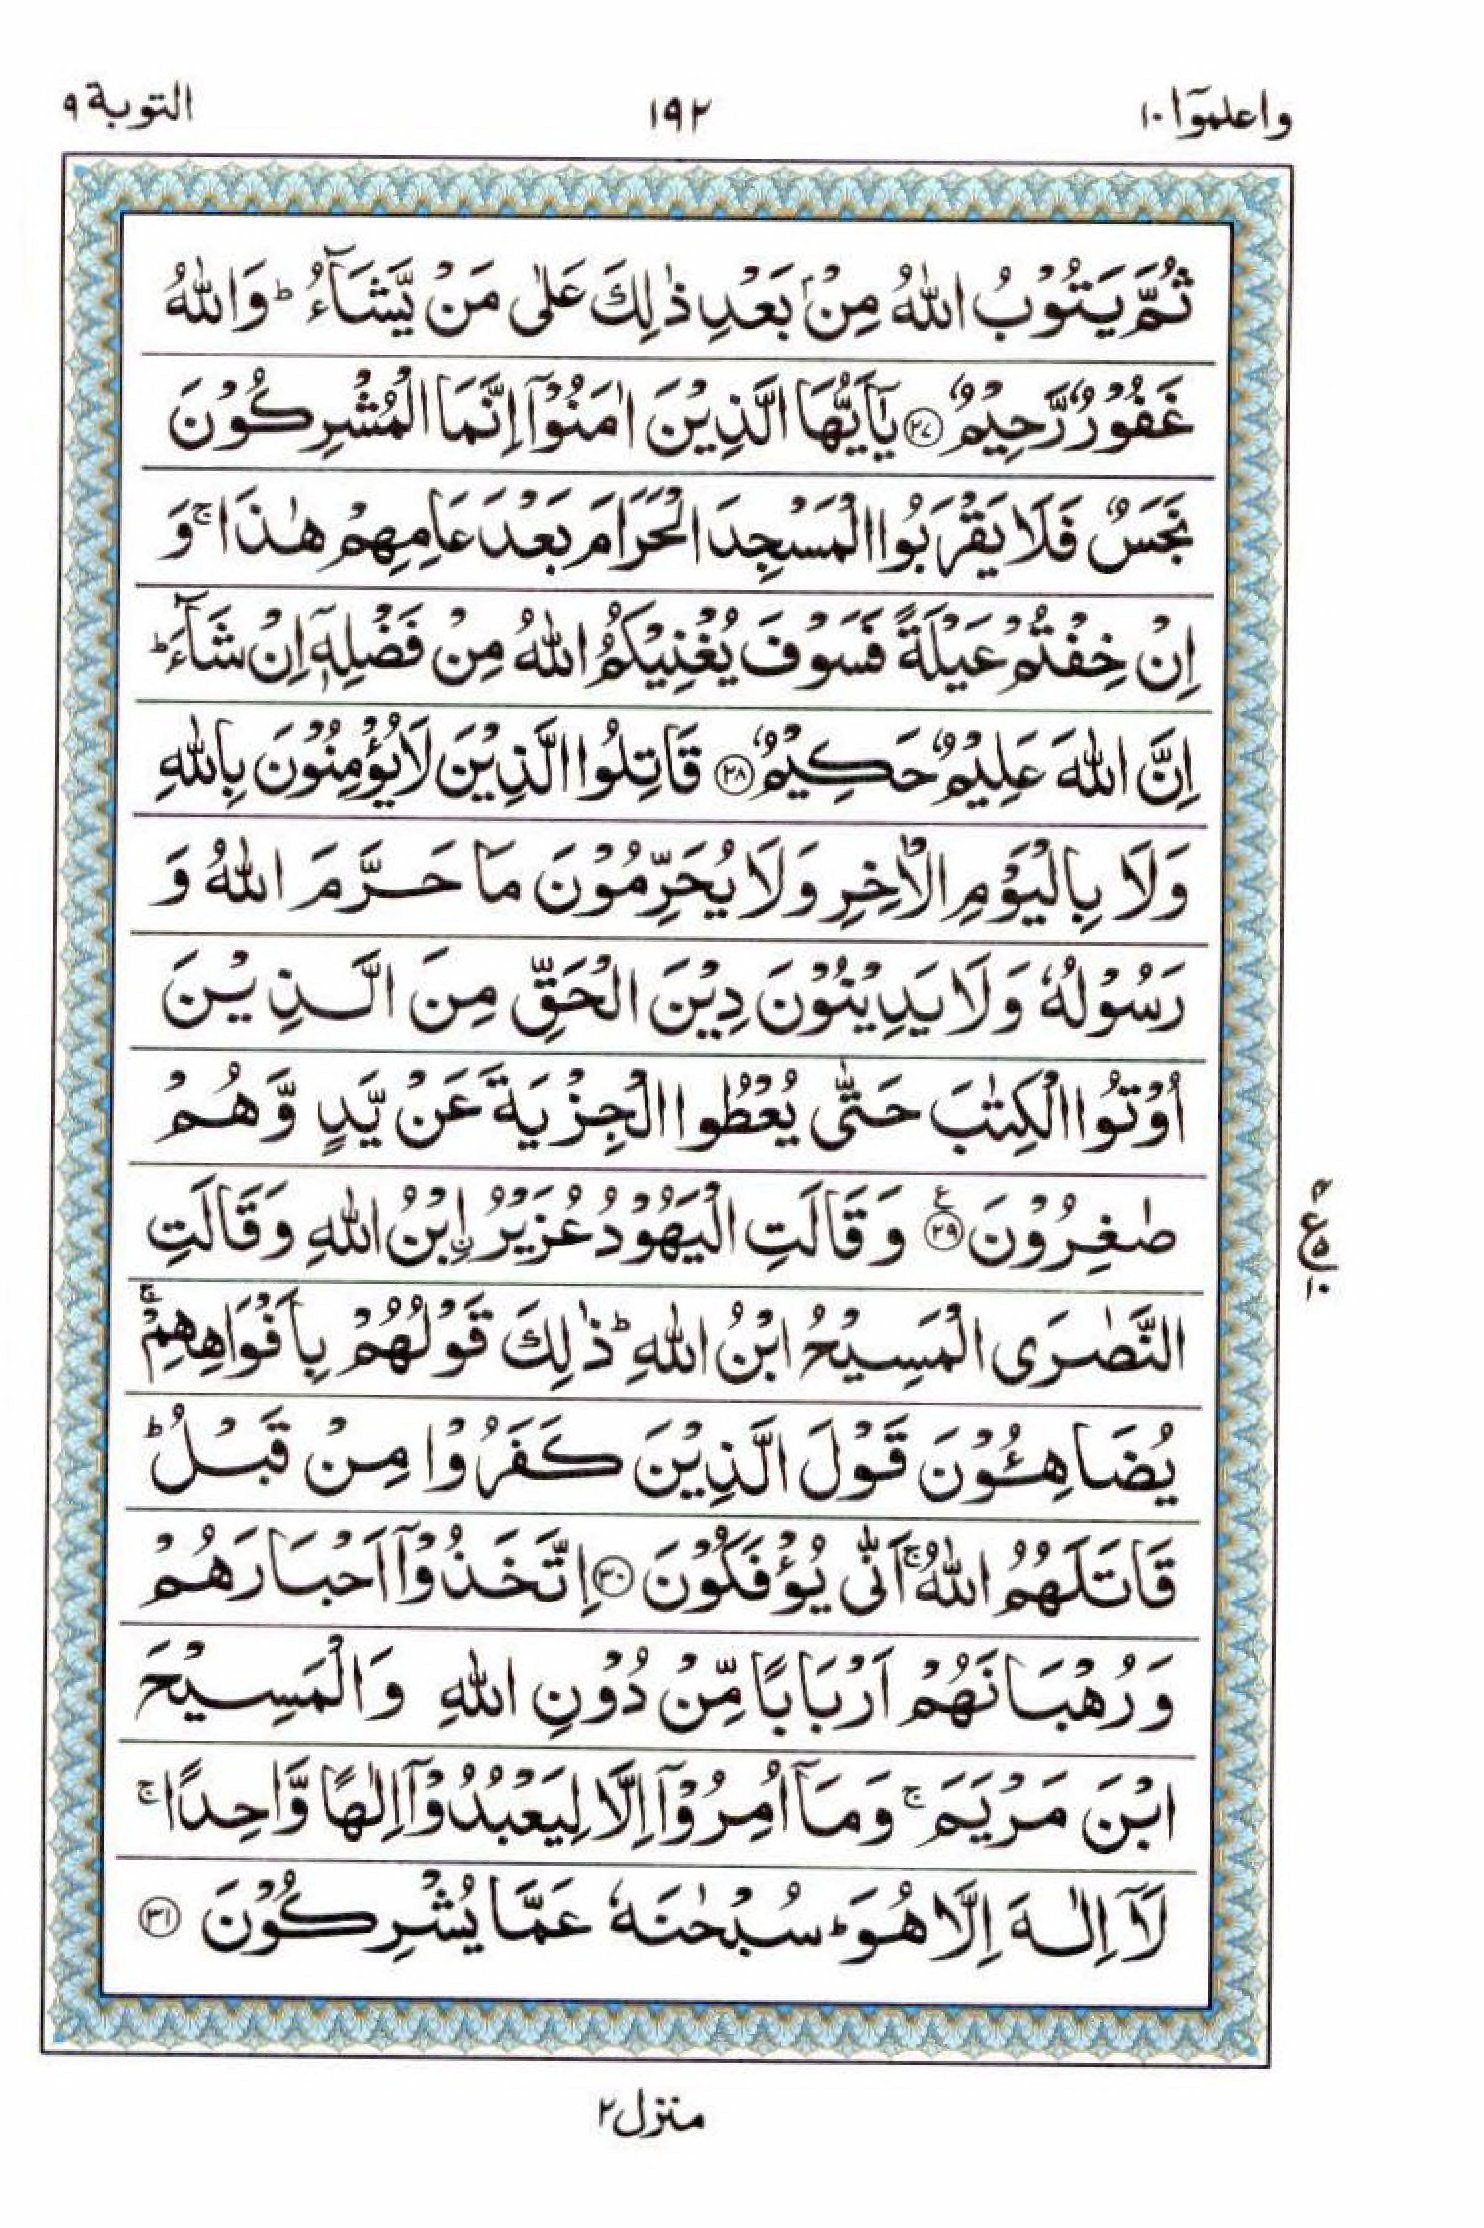 واعلموٓا ١٠
١٩٢
التوبة ٩
ثُمَّ يَتُوْبُ اللّٰهُ مِنْۢ بَعْدِ ذٰلِكَ عَلٰى مَنْ يَّشَآءُ ؕ وَاللّٰهُ
غَفُوْرٌ رَّحِيْمٌ ۲۷ يٰۤاَيُّهَا الَّذِيْنَ اٰمَنُوْۤا اِنَّمَا الْمُشْرِكُوْنَ
نَجَسٌ فَلَا يَقْرَبُوا الْمَسْجِدَ الْحَرَامَ بَعْدَ عَامِهِمْ هٰذَا ۚ وَ
اِنْ خِفْتُمْ عَيْلَةً فَسَوْفَ يُغْنِيْكُمُ اللّٰهُ مِنْ فَضْلِهٖۤ اِنْ شَآءَ ؕ
اِنَّ اللّٰهَ عَلِيْمٌ حَكِيْمٌ ۲۸ قَاتِلُوا الَّذِيْنَ لَا يُؤْمِنُوْنَ بِاللّٰهِ
وَلَا بِالْيَوْمِ الْاٰخِرِ وَلَا يُحَرِّمُوْنَ مَا حَرَّمَ اللّٰهُ وَ
رَسُوْلُهٗ وَلَا يَدِيْنُوْنَ دِيْنَ الْحَقِّ مِنَ الَّذِيْنَ
اُوْتُوا الْكِتٰبَ حَتّٰى يُعْطُوا الْجِزْيَةَ عَنْ يَّدٍ وَّهُمْ
صٰغِرُوْنَ ۲۹ ع وَقَالَتِ الْيَهُوْدُ عُزَيْرُ ۨابْنُ اللّٰهِ وَقَالَتِ
٤ ع ٥ ١٠
النَّصٰرَى الْمَسِيْحُ ابْنُ اللّٰهِ ؕ ذٰلِكَ قَوْلُهُمْ بِاَفْوَاهِهِمْ ۚ
يُضَاهِـُٔوْنَ قَوْلَ الَّذِيْنَ كَفَرُوْا مِنْ قَبْلُ ؕ
قَاتَلَهُمُ اللّٰهُ ۚ اَنّٰى يُؤْفَكُوْنَ ۳۰ اِتَّخَذُوْۤا اَحْبَارَهُمْ
وَرُهْبَانَهُمْ اَرْبَابًا مِّنْ دُوْنِ اللّٰهِ وَالْمَسِيْحَ
ابْنَ مَرْيَمَ ۚ وَمَاۤ اُمِرُوْۤا اِلَّا لِيَعْبُدُوْۤا اِلٰهًا وَّاحِدًا ۚ
لَاۤ اِلٰهَ اِلَّا هُوَ ؕ سُبْحٰنَهٗ عَمَّا يُشْرِكُوْنَ ۳۱
منزل ٢